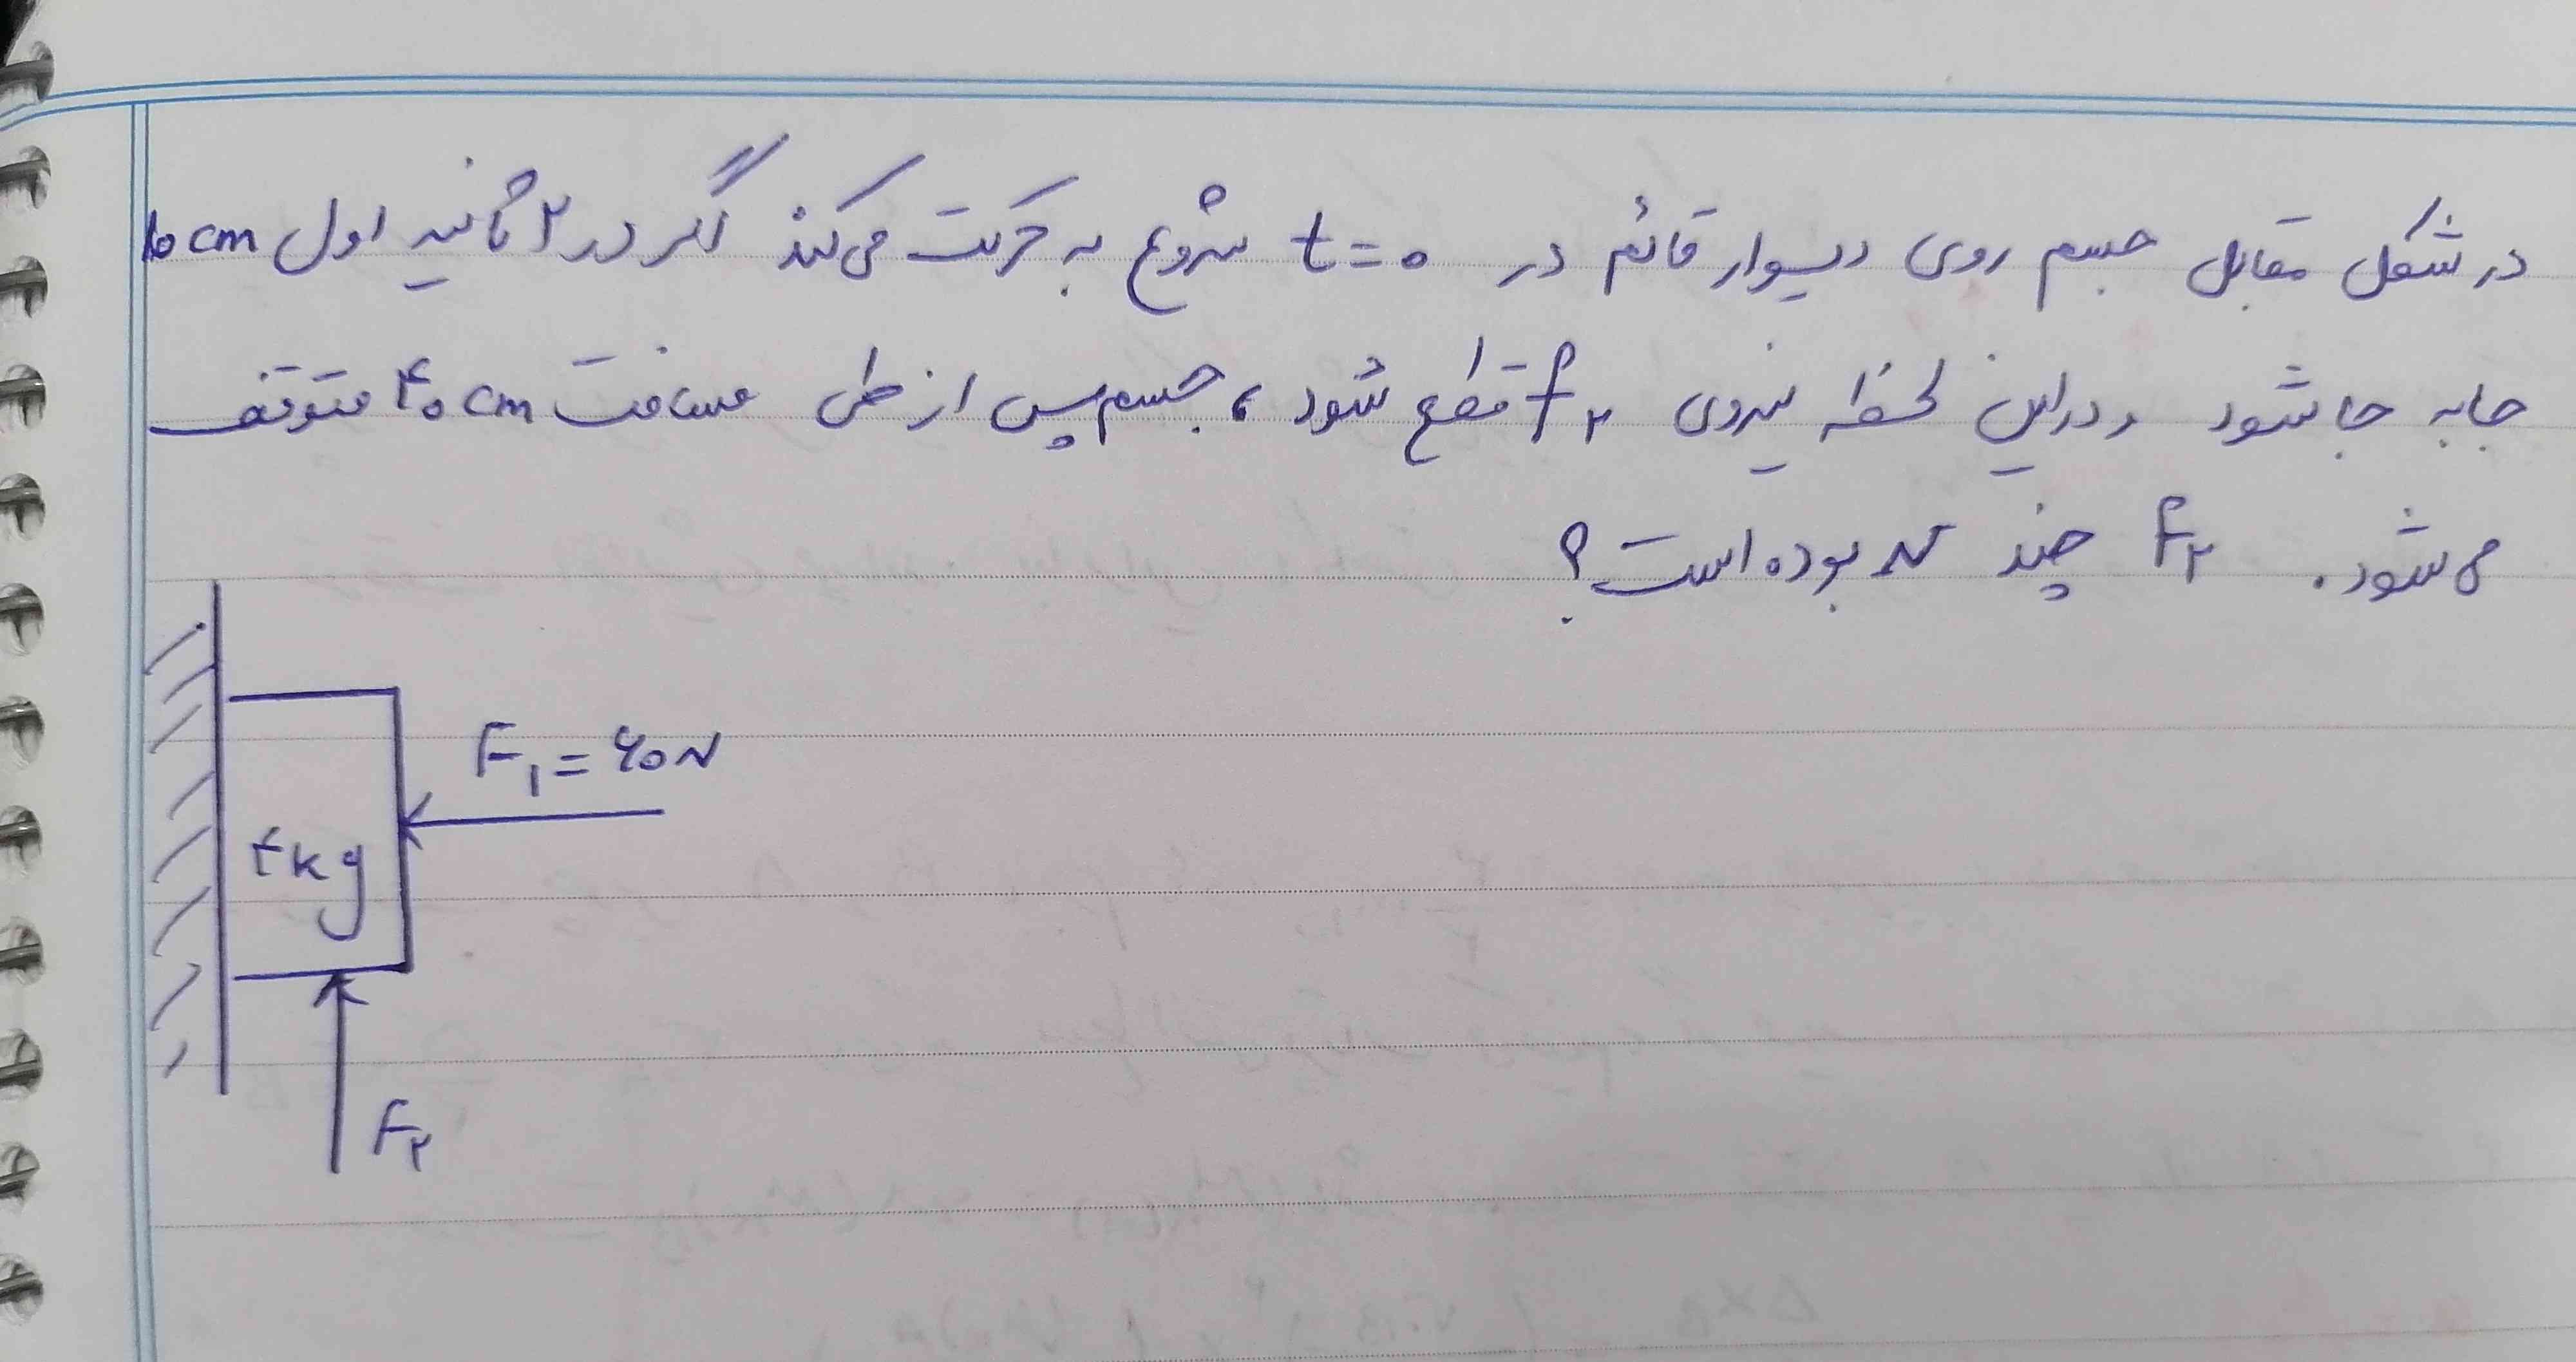 در شکل مقابل جسم روی دیوار قائم در t=۰ شروع به حرکت می‌کند اگر در ۲ ثانیه اول ۱۰ cm
جابه جا شود و در این لحظه نیروی F۲ قطع شود، جسم پس از طی مسافت ۴۰ cm متوقف
می‌شود. F۲ چند N بوده است؟
F۱ = ۶۰ N
۴ kg
F۲